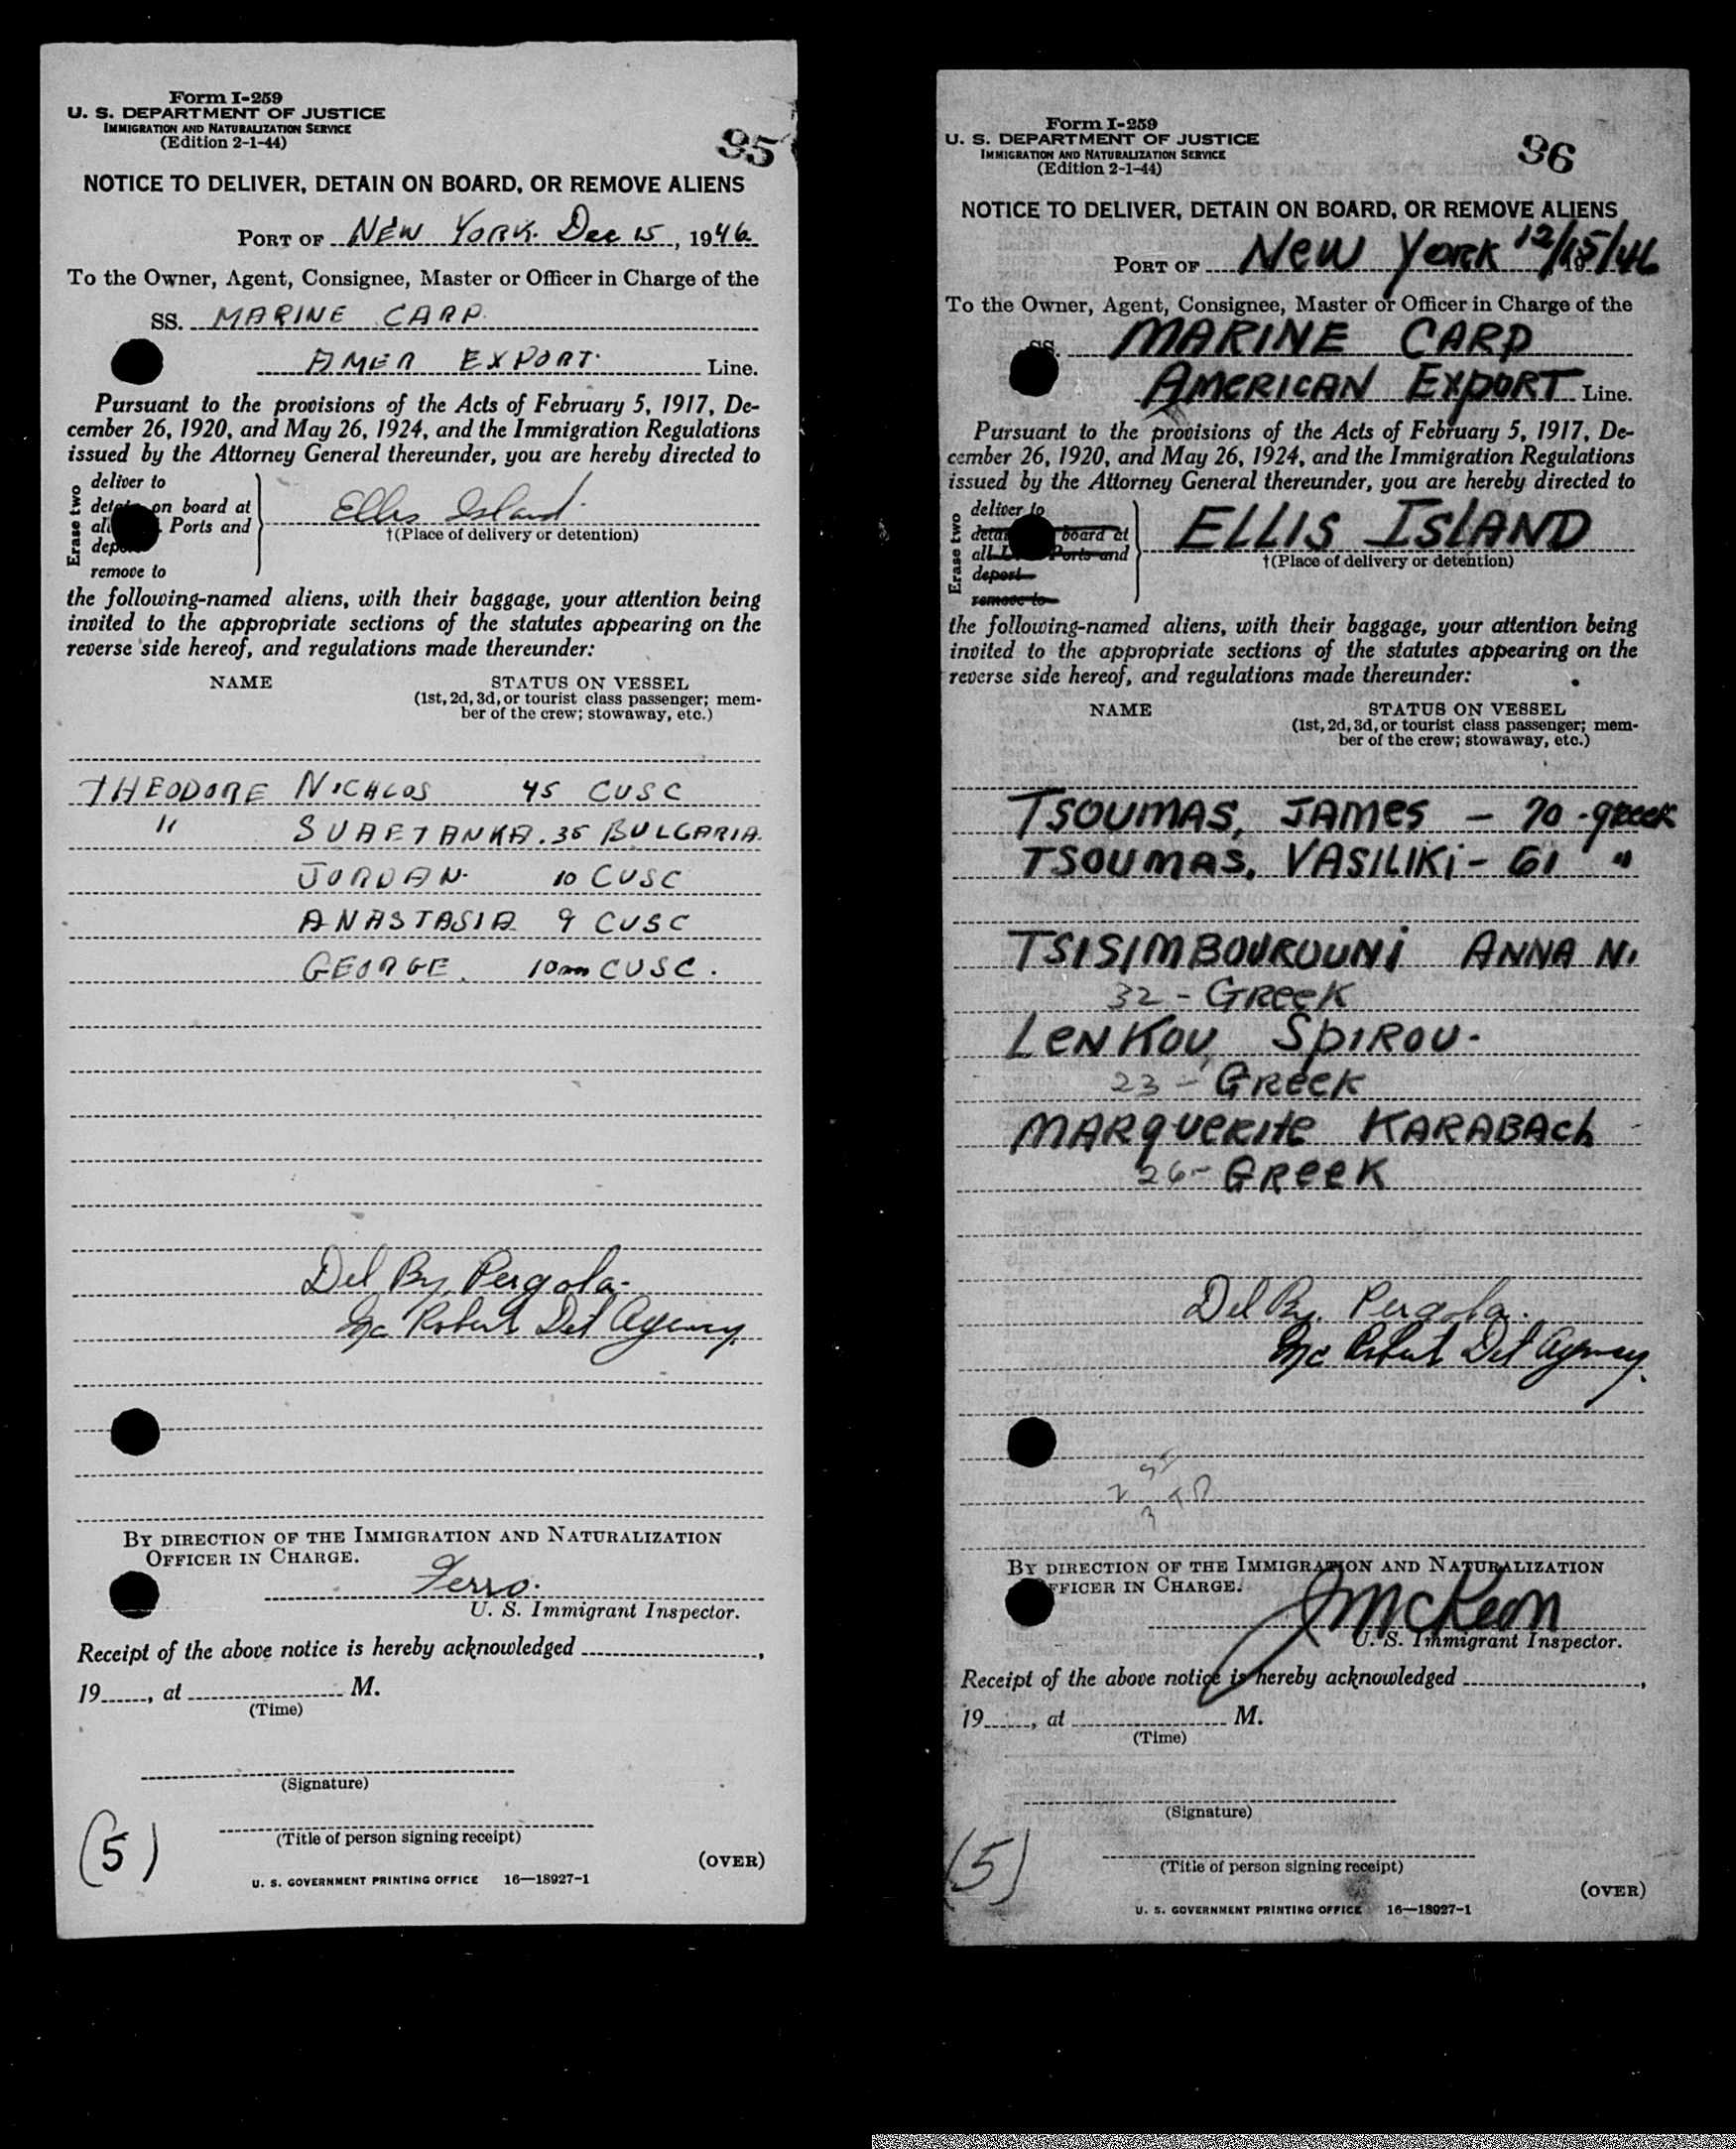 Form I-259
U. S. DEPARTMENT OF JUSTICE
IMMIGRATION AND NATURALIZATION SERVICE
(Edition 2-1-44)
95
NOTICE TO DELIVER, DETAIN ON BOARD, OR REMOVE ALIENS
PORT OF NEW YORK. Dec 15, 1946
To the Owner, Agent, Consignee, Master or Officer in Charge of the
SS. MARINE CARP.
AMER EXPORT. Line.
Pursuant to the provisions of the Acts of February 5, 1917, De-
cember 26, 1920, and May 26, 1924, and the Immigration Regulations
issued by the Attorney General thereunder, you are hereby directed to
Erase two
deliver to
on board at
Ports and
remove to
Ellis Island.
†(Place of delivery or detention)
the following-named aliens, with their baggage, your attention being
invited to the appropriate sections of the statutes appearing on the
reverse side hereof, and regulations made thereunder:
NAME STATUS ON VESSEL
(1st, 2d, 3d, or tourist class passenger; mem-
ber of the crew; stowaway, etc.)
THEODORE NICHLOS 45 CUSC
" SUAETANKA. 35 BULGARIA.
JORDAN. 10 CUSC
ANASTASIA 9 CUSC
GEORGE. 10 CUSC.
Del By Pergola-
Mc Roberts Det Agency.
BY DIRECTION OF THE IMMIGRATION AND NATURALIZATION
OFFICER IN CHARGE.
Ferro.
U. S. Immigrant Inspector.
Receipt of the above notice is hereby acknowledged ,
19 , at M.
(Time)
(Signature)
(5)
(Title of person signing receipt)
(OVER)
U. S. GOVERNMENT PRINTING OFFICE 16—18927-1
Form I-259
U. S. DEPARTMENT OF JUSTICE
IMMIGRATION AND NATURALIZATION SERVICE
(Edition 2-1-44)
96
NOTICE TO DELIVER, DETAIN ON BOARD, OR REMOVE ALIENS
PORT OF New York 12/15/46
To the Owner, Agent, Consignee, Master or Officer in Charge of the
SS. MARINE CARP
AMERICAN EXPORT Line.
Pursuant to the provisions of the Acts of February 5, 1917, De-
cember 26, 1920, and May 26, 1924, and the Immigration Regulations
issued by the Attorney General thereunder, you are hereby directed to
Erase two
deliver to
board at
Ports and
deport
remove to
ELLIS ISLAND
†(Place of delivery or detention)
the following-named aliens, with their baggage, your attention being
invited to the appropriate sections of the statutes appearing on the
reverse side hereof, and regulations made thereunder:
NAME STATUS ON VESSEL
(1st, 2d, 3d, or tourist class passenger; mem-
ber of the crew; stowaway, etc.)
TSOUMAS, JAMES - 70 - greek
TSOUMAS, VASILIKI - 61 "
TSISIMBOUROUNI ANNA N.
32 - GREEK
LENKOU SPIROU-
23 - GREEK
MARQUERITE KARABACH
26 - GREEK
Del By. Pergola.
Mc Roberts Det Agency.
BY DIRECTION OF THE IMMIGRATION AND NATURALIZATION
OFFICER IN CHARGE.
J McKeon
U. S. Immigrant Inspector.
Receipt of the above notice is hereby acknowledged ,
19 , at M.
(Time)
(Signature)
(5)
(Title of person signing receipt)
(OVER)
U. S. GOVERNMENT PRINTING OFFICE 16—18927-1